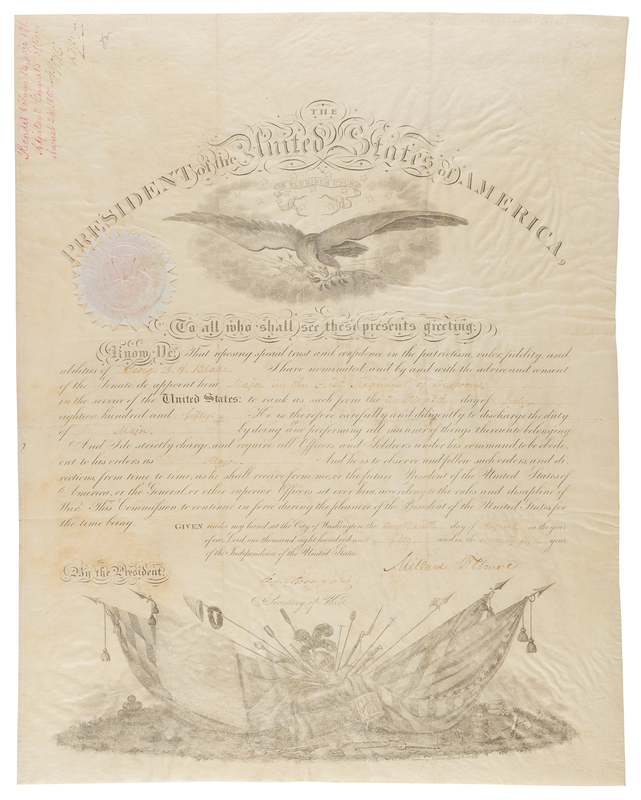 THE
PRESIDENT of the United States of AMERICA,
E PLURIBUS UNUM
To all who shall see these presents greeting:
Know Ye, That reposing special trust and confidence in the patriotism, valor, fidelity, and
abilities of George A. H. Blake I have nominated, and by and with the advice and consent
of the Senate do appoint him Major in the First Regiment of Dragoons
in the service of the United States: to rank as such from the day of July
eighteen hundred and fifty He is therefore carefully and diligently to discharge the duty
of Major by doing and performing all manner of things thereunto belonging
And I do strictly charge, and require all Officers and Soldiers under his command, to be obedi-
ent to his orders as Major And he is to observe and follow such orders, and di-
rections, from time to time, as he shall receive from me, or the future President of the United States of
America, or the General or other superior Officers set over him, according to the rules and discipline of
War. This Commission to continue in force during the pleasure of the President of the United States, for
the time being.
GIVEN under my hand, at the City of Washington, the day of August in the year
of our Lord, one thousand eight hundred and fifty and in the seventy fifth year
of the Independence of the United States.
By the President,
Millard Fillmore
Secretary of War.